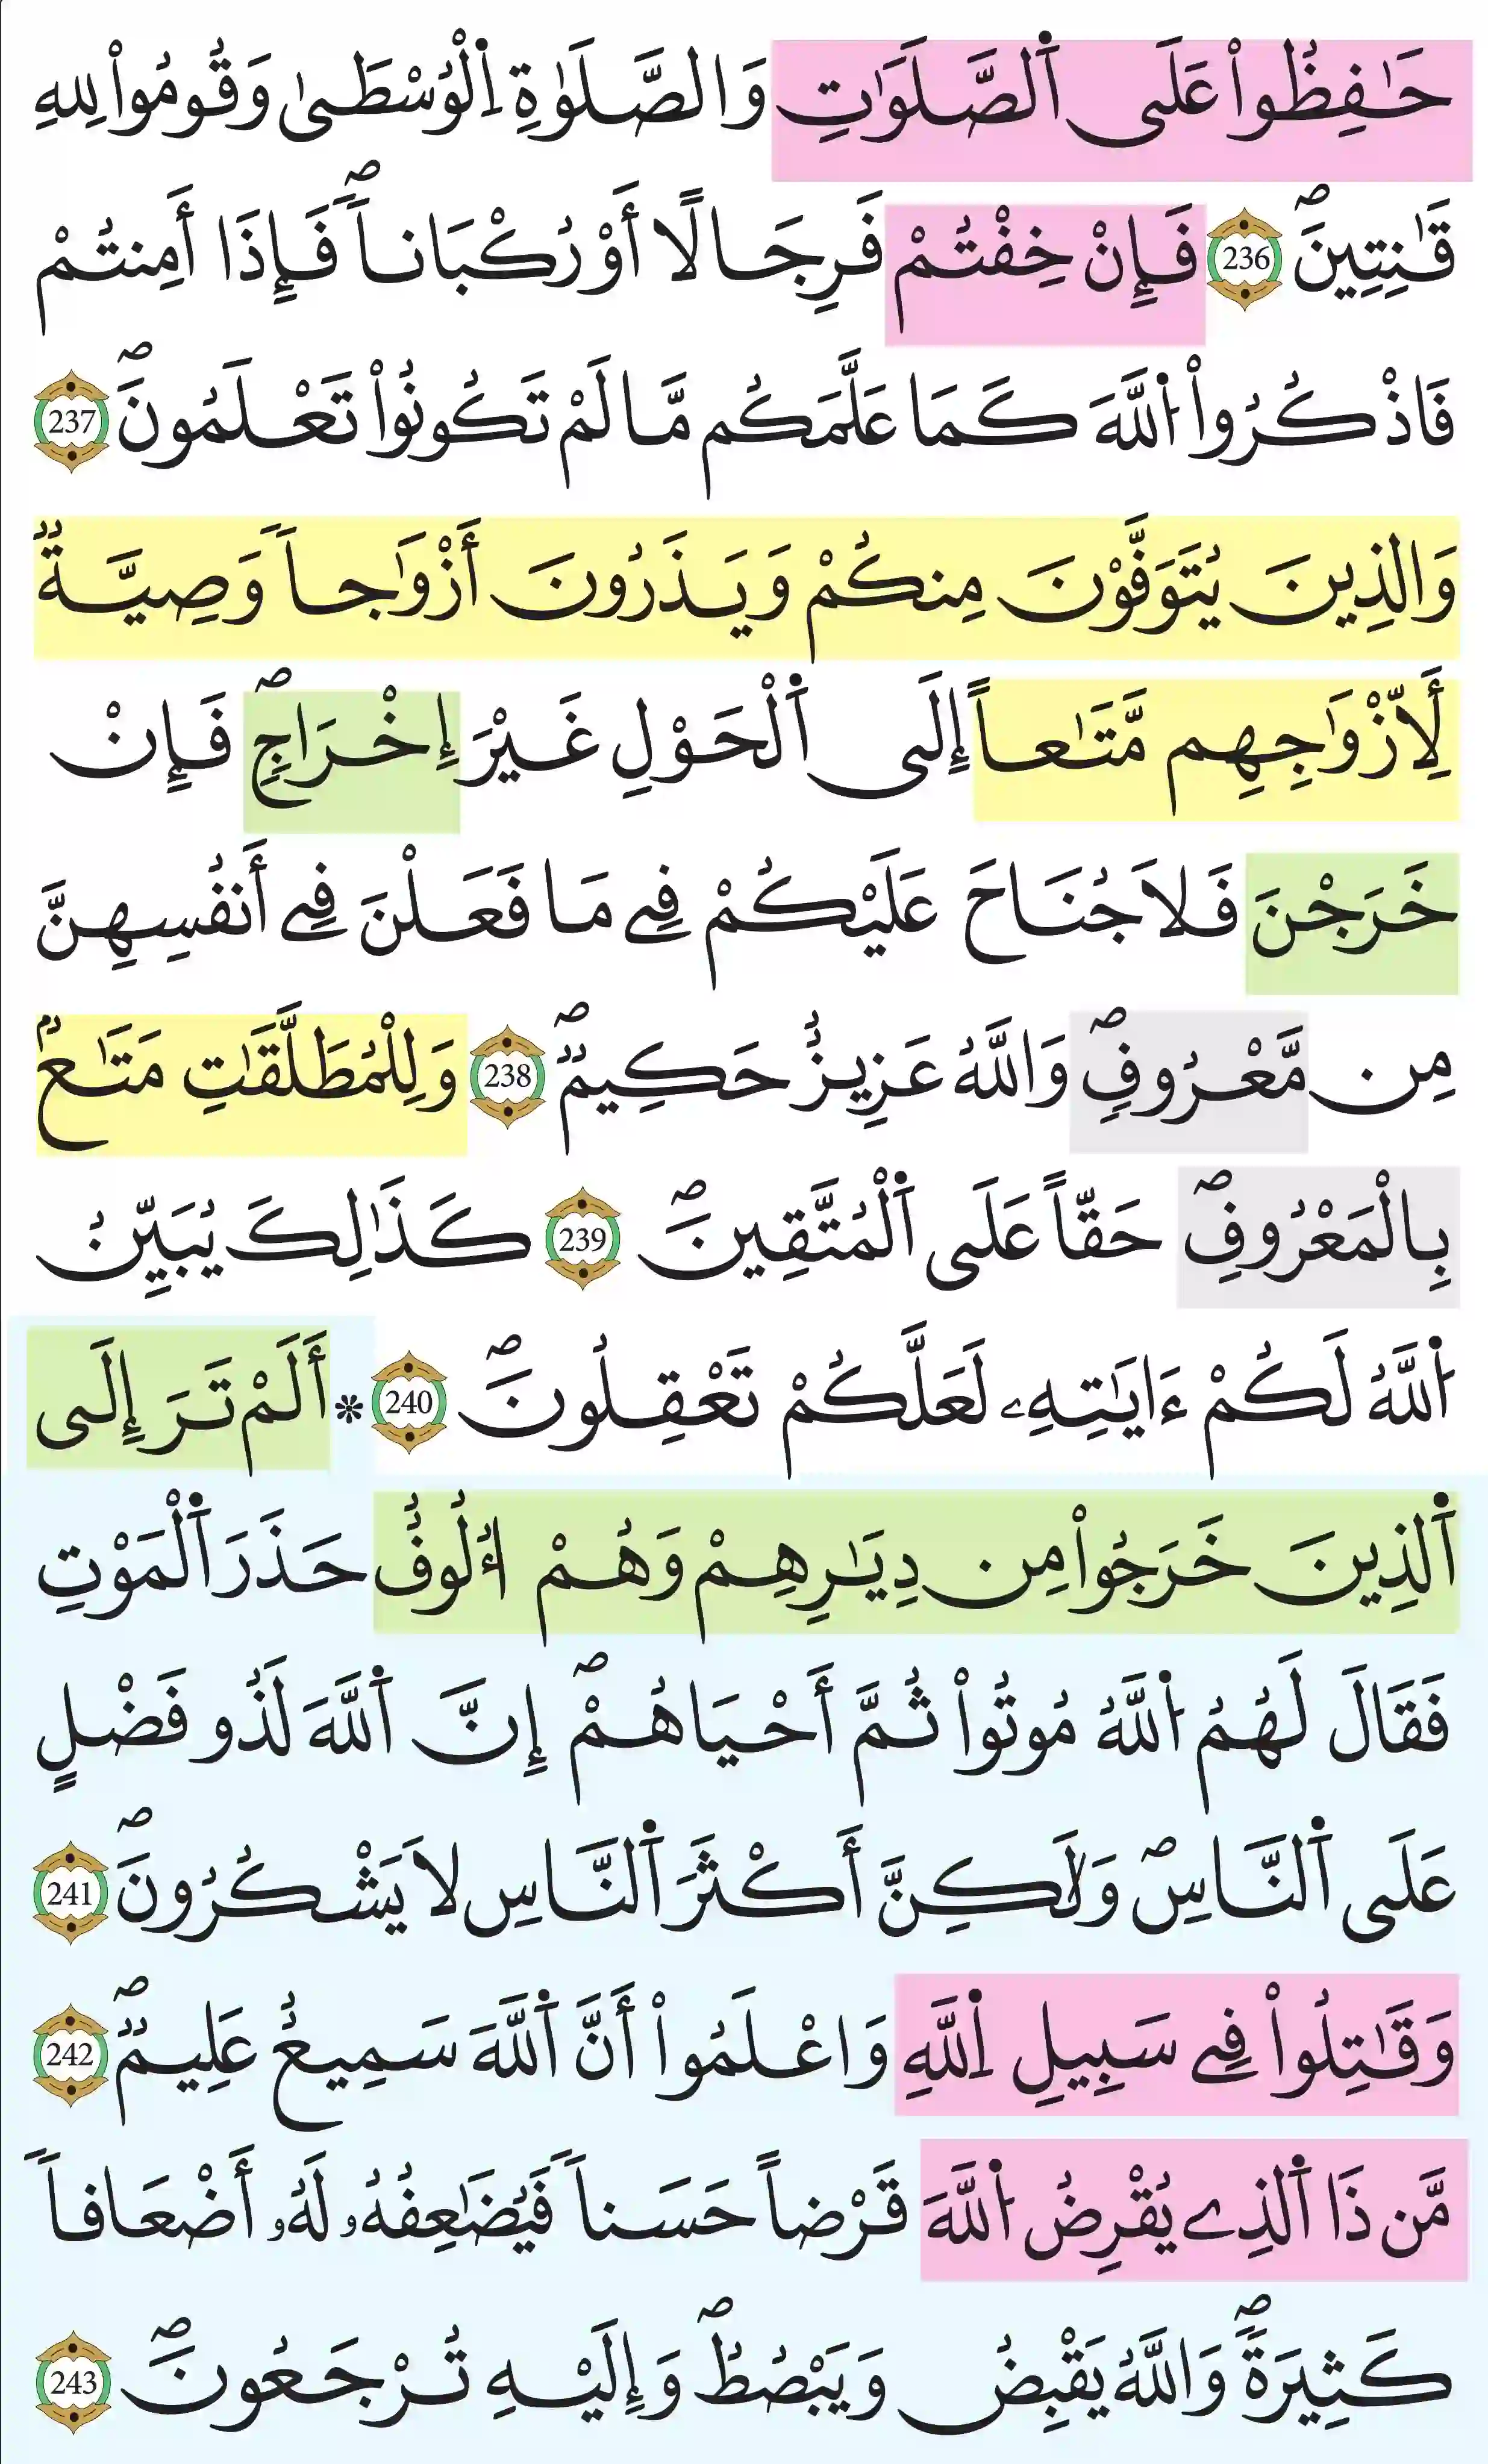 حَٰفِظُواْ عَلَى اَ۬لصَّلَوَٰتِ وَالصَّلَوٰةِ اِ۬لْوُسْطَىٰ وَقُومُواْ لِلهِ
قَٰنِتِينَۖ 236 فَإِنْ خِفْتُمْ فَرِجَالًا أَوْ رُكْبَاناٗۖ فَإِذَا أَمِنتُمْ
فَاذْكُرُواْ اُ۬للَّهَ كَمَا عَلَّمَكُم مَّا لَمْ تَكُونُواْ تَعْلَمُونَۖ 237
وَالذِينَ يُتَوَفَّوْنَ مِنكُمْ وَيَذَرُونَ أَزْوَٰجاٗ وَصِيَّةٞ
لِّأَزْوَٰجِهِم مَّتَٰعاً إِلَى اَ۬لْحَوْلِ غَيْرَ إِخْرَاجٖۖ فَإِنْ
خَرَجْنَ فَلَا جُنَاحَ عَلَيْكُمْ فِے مَا فَعَلْنَ فِے أَنفُسِهِنَّ
مِن مَّعْرُوفٖۖ وَاللَّهُ عَزِيزٌ حَكِيمٞۖ 238 وَلِلْمُطَلَّقَٰتِ مَتَٰعُۢ
بِالْمَعْرُوفِۖ حَقّاً عَلَى اَ۬لْمُتَّقِينَۖ 239 كَذَٰلِكَ يُبَيِّنُ
اُ۬للَّهُ لَكُمْ ءَايَٰتِهِۦ لَعَلَّكُمْ تَعْقِلُونَۖ 240 * أَلَمْ تَرَ إِلَى
اَ۬لذِينَ خَرَجُواْ مِن دِيَٰرِهِمْ وَهُمْ أُلُوفٌ حَذَرَ اَ۬لْمَوْتِ
فَقَالَ لَهُمُ اُ۬للَّهُ مُوتُواْ ثُمَّ أَحْيَاهُمْۖ إِنَّ اَ۬للَّهَ لَذُو فَضْلٍ
عَلَى اَ۬لنَّاسِۖ وَلَٰكِنَّ أَكْثَرَ اَ۬لنَّاسِ لَا يَشْكُرُونَۖ 241
وَقَٰتِلُواْ فِے سَبِيلِ اِ۬للَّهِ وَاعْلَمُواْ أَنَّ اَ۬للَّهَ سَمِيعٌ عَلِيمٞۖ 242
مَّن ذَا اَ۬لذِے يُقْرِضُ اُ۬للَّهَ قَرْضاً حَسَناٗ فَيُضَٰعِفُهُۥ لَهُۥ أَضْعَافاٗ
كَثِيرَةٗۖ وَاللَّهُ يَقْبِضُ وَيَبْصُطُۖ وَإِلَيْهِ تُرْجَعُونَۖ 243